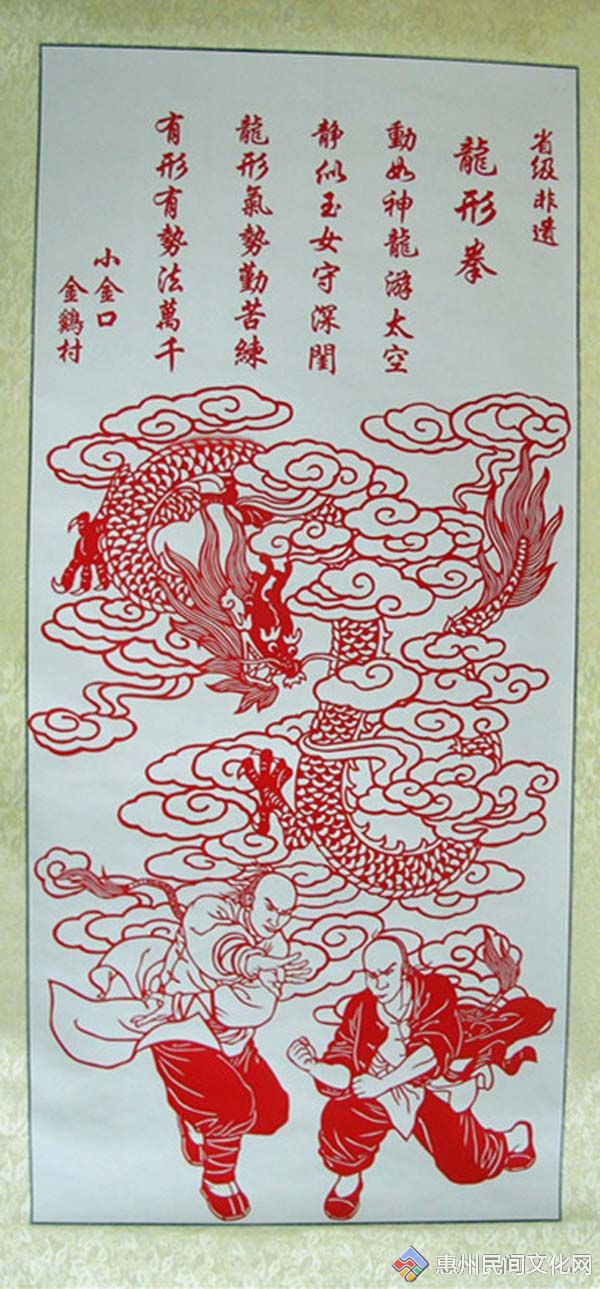 省级非遗
龍形拳
動如神龍游太空
静似玉女守深閨
龍形氣勢勤苦練
有形有勢法萬千
小金口
金鷄村
惠州民间文化网